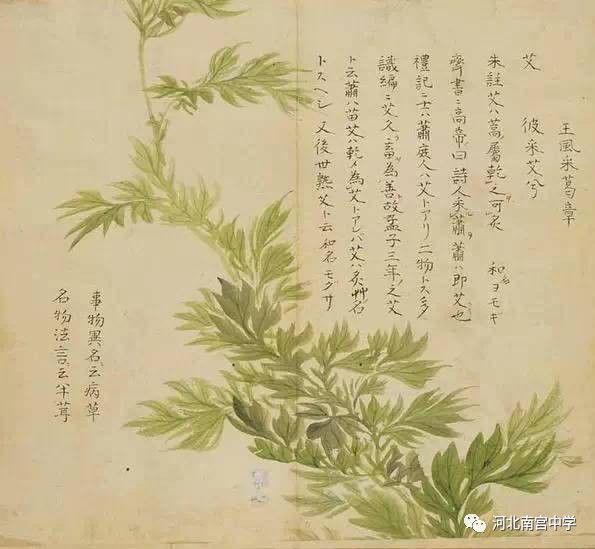 王風采葛章
艾 彼采艾兮
朱註艾ハ蒿屬乾之可灸 和名ヨモギ
齊書ニ高帝曰詩人采蕭蕭ハ即艾也
禮記ニ士ハ蕭庶人ハ艾トアリ二物トスタ
識編ニ艾久畜為善故孟子三年ノ之艾
ト云蕭ハ苗艾ハ乾メ為艾トアレバ艾ハ灸艸名
トスヘシ 又後世熟艾ト云 和名モグサ
事物異名ニ云病草
名物法言ニ云半茸
河北南宫中学